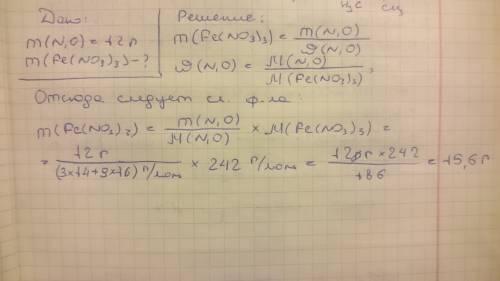 H₂C    CH
Дано:
Решение:
m(N,O) = 12 г
m(Fe(NO₃)₃) - ?
m(Fe(NO₃)₃) = m(N,O) / ϑ(N,O)
ϑ(N,O) = M(N,O) / M(Fe(NO₃)₃) ,
Отсюда следует сл. ф-ла:
m(Fe(NO₃)₃) = m(N,O) / M(N,O) × M(Fe(NO₃)₃) =
= 12 г / (3×14+9×16) г/моль × 242 г/моль = 12 г × 242 / 186 = 15,6 г